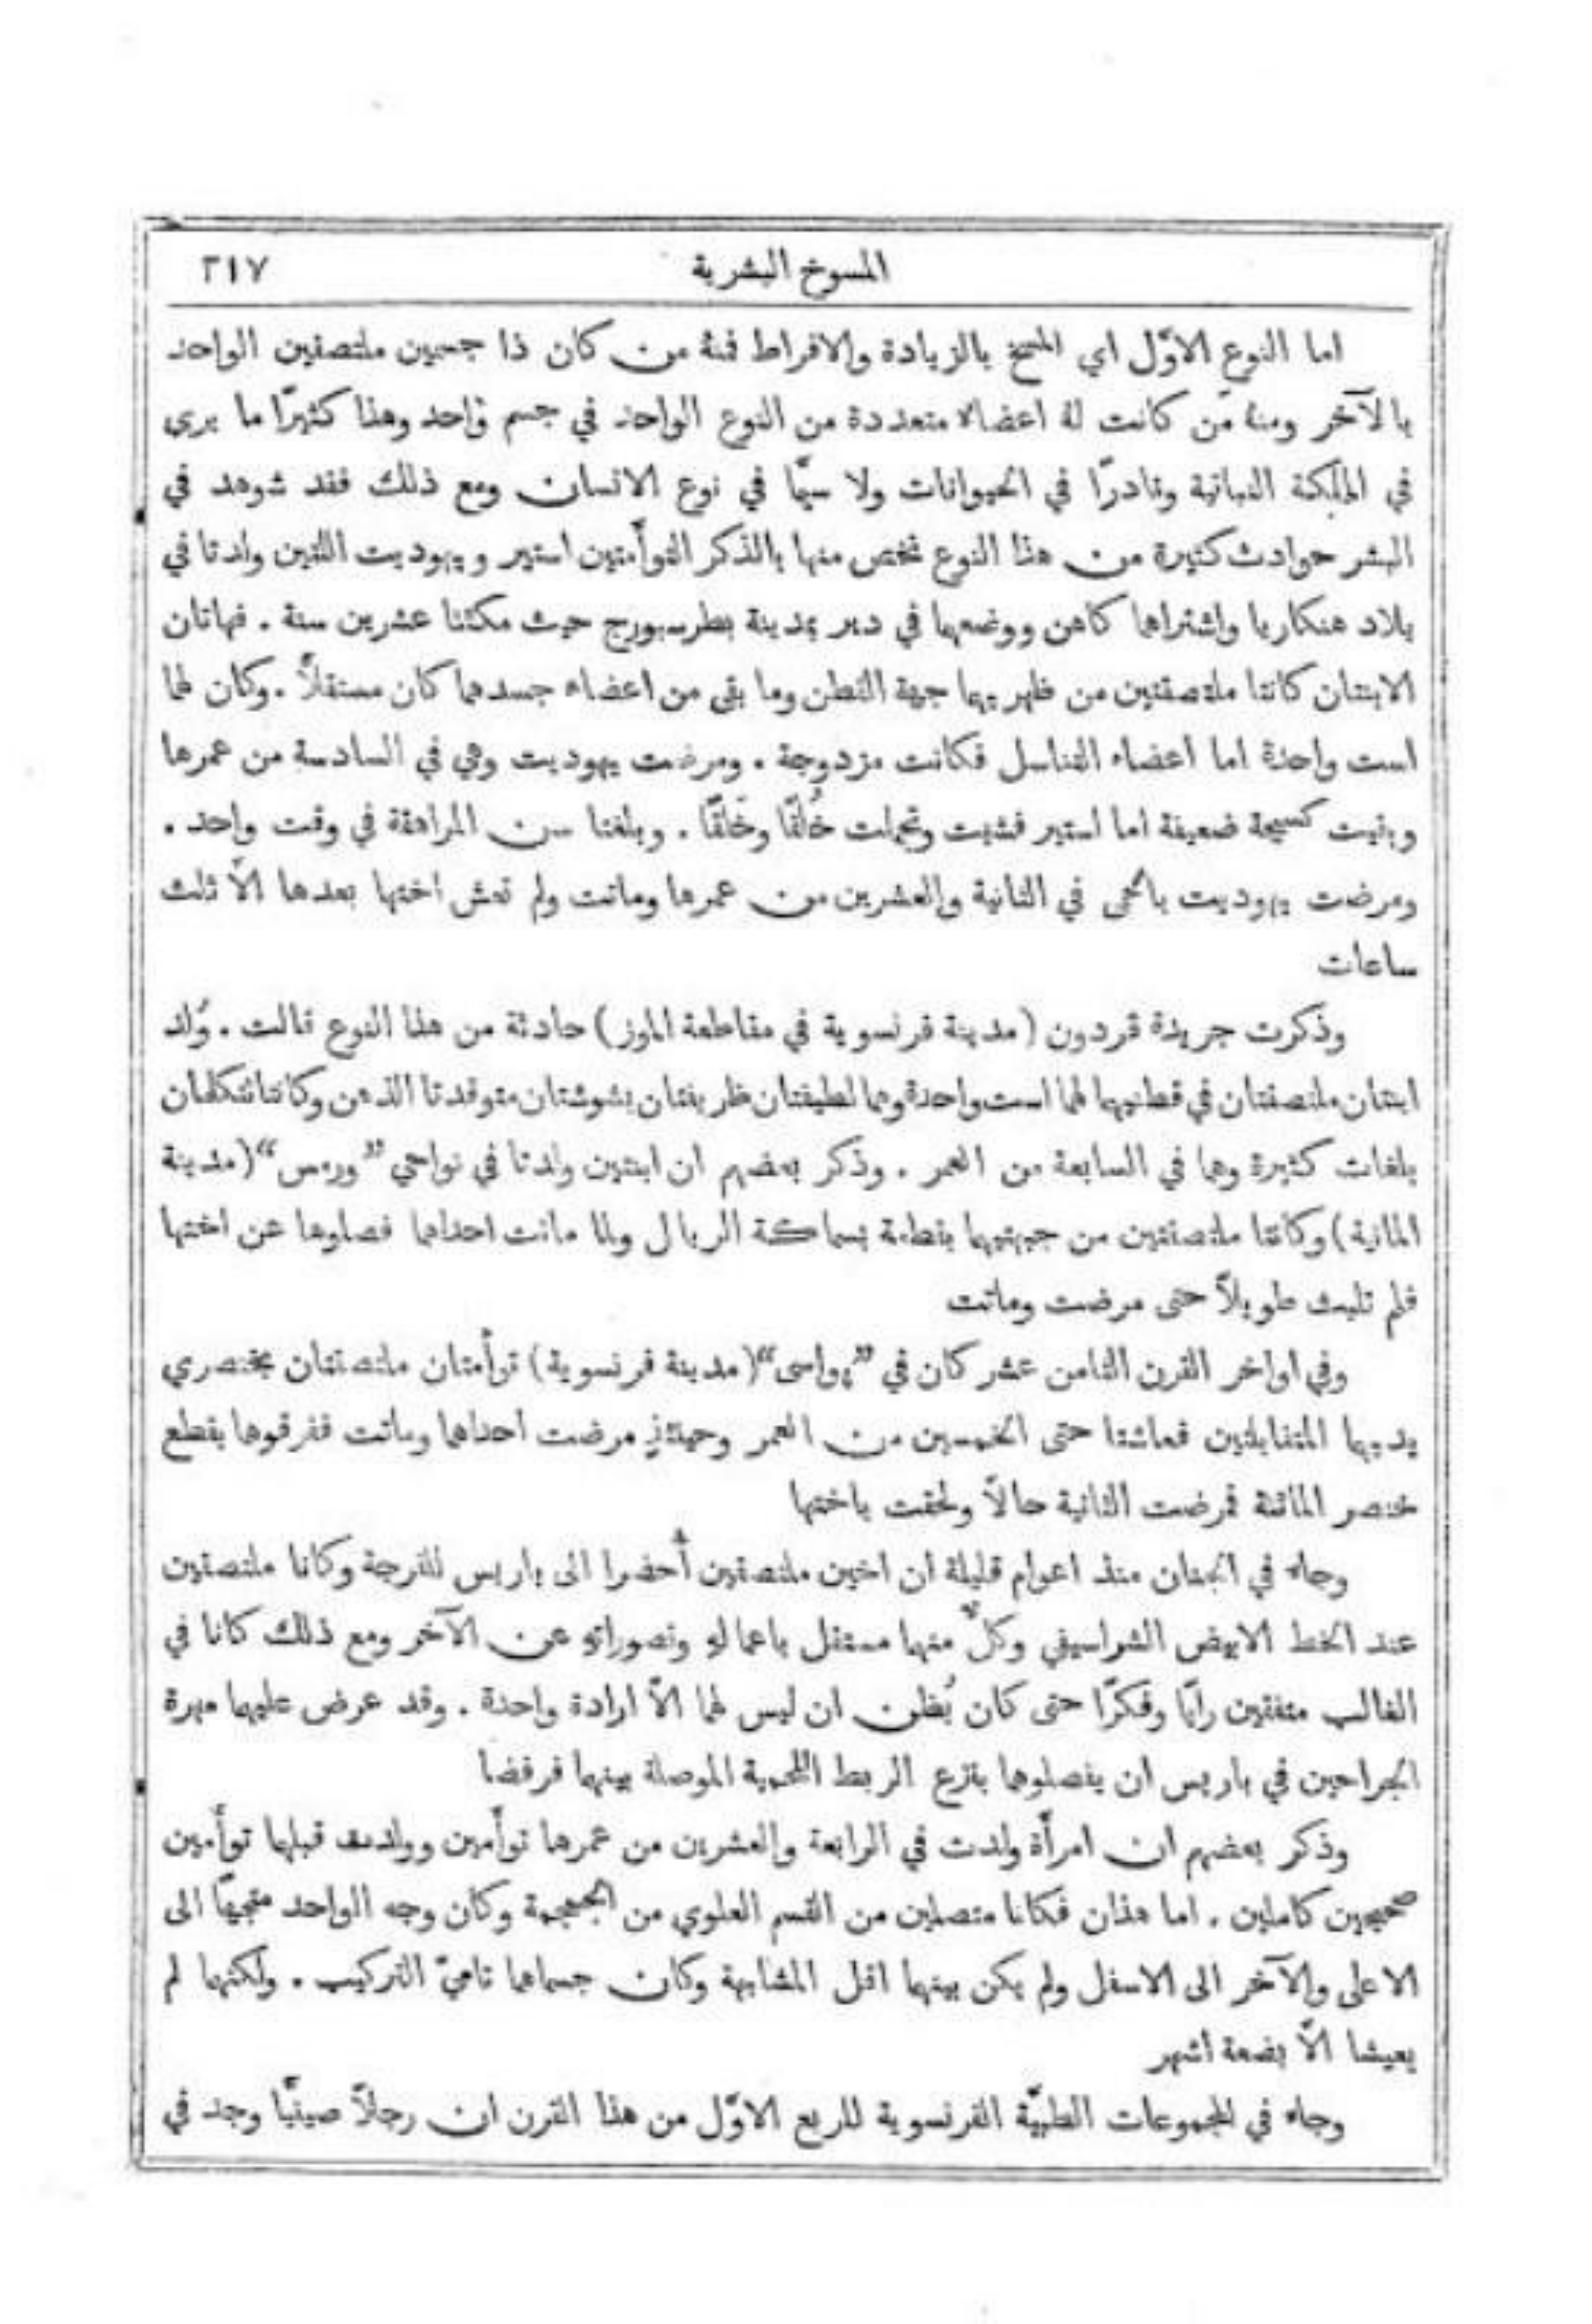 المسوخ البشرية ٢١٧
اما النوع الاوّل اي المسخ بالزيادة والافراط فمنهُ من كان ذا جسمين ملتصقين الواحد
بالآخر ومنهُ مَن كانت لهُ اعضاء متعددة من النوع الواحد في جسم واحد وهذا كثيرًا ما يرى
في المملكة النباتية ونادرًا في الحيوانات ولا سيَّما في نوع الانسان ومع ذلك فقد شوهد في
البشر حوادث كثيرة من هذا النوع نخص منها بالذكر التوأَمتين استير ويهوديت اللتين ولدتا في
بلاد هنكاريا واشتراهما كاهن ووضعهما في دير بمدينة بطرسبورج حيث مكثتا عشرين سنة . فهاتان
الابنتان كانتا ملتصقتين من ظهريهما جهة القطن وما بقي من اعضاء جسدهما كان مستقلاًّ . وكان لهما
است واحدة اما اعضاء التناسل فكانت مزدوجة . ومرضت يهوديت وهي في السادسة من عمرها
وبقيت كسيحة ضعيفة اما استير فشبت وتجملت خُلقًا وخَلقًا . وبلغتا سن المراهقة في وقت واحد .
ومرضت يهوديت بالحمى في الثانية والعشرين من عمرها وماتت ولم تعش اختها بعدها الاَّ ثلث
ساعات
وذكرت جريدة ڤردون (مدينة فرنسوية في مقاطعة الموز) حادثة من هذا النوع قالت . وُلد
ابنتان ملتصقتان في قطنيهما لهما است واحدة وهما لطيفتان ظريفتان بشوشتان متوقدتا الذهن وكانتا تتكلمان
بلغات كثيرة وهما في السابعة من العمر . وذكر بعضهم ان ابنتين ولدتا في نواحي ”ورمس“ (مدينة
المانية) وكانتا ملتصقتين من جبهتيهما بقطعة بسماكة الريال ولما ماتت احداهما فصلوها عن اختها
فلم تلبث طويلاً حتى مرضت وماتت
وفي اواخر القرن الثامن عشر كان في (مدينة فرنسوية) توأَمتان ملتصقتان بخنصري
يديهما المتقابلتين فعاشتا حتى الخمسين من العمر وحينئذٍ مرضت احداهما وماتت ففرقوهما بقطع
خنصر المائتة فمرضت الثانية حالاً ولحقت باختها
وجاء في الجنان منذ اعوام قليلة ان اخين ملتصقين أُحضرا الى باريس للفرجة وكانا ملتصقين
عند الخط الابيض الشراسيفي وكلٌّ منهما مستقل باعمالهِ وتصوراتهِ عن الآخر ومع ذلك كانا في
الغالب متفقين رايًا وفكرًا حتى كان يُظن ان ليس لهما الاَّ ارادة واحدة . وقد عرض عليهما مهرة
الجراحين في باريس ان يفصلوهما بنزع الربط اللحمية الموصلة بينهما فرفضا
وذكر بعضهم ان امرأَة ولدت في الرابعة والعشرين من عمرها توأَمين وولدت قبلهما توأَمين
صحيحين كاملين . اما هذان فكانا متصلين من القسم العلوي من الجمجمة وكان وجه الواحد متجهًا الى
الاعلى والآخر الى الاسفل ولم يكن بينهما اقل المشابهة وكان جسماهما تاميّ التركيب . ولكنهما لم
يعيشا الاَّ بضعة اشهر
وجاء في المجموعات الطبيَّة الفرنسوية للربع الاوَّل من هذا القرن ان رجلاً صينيًّا وجد في